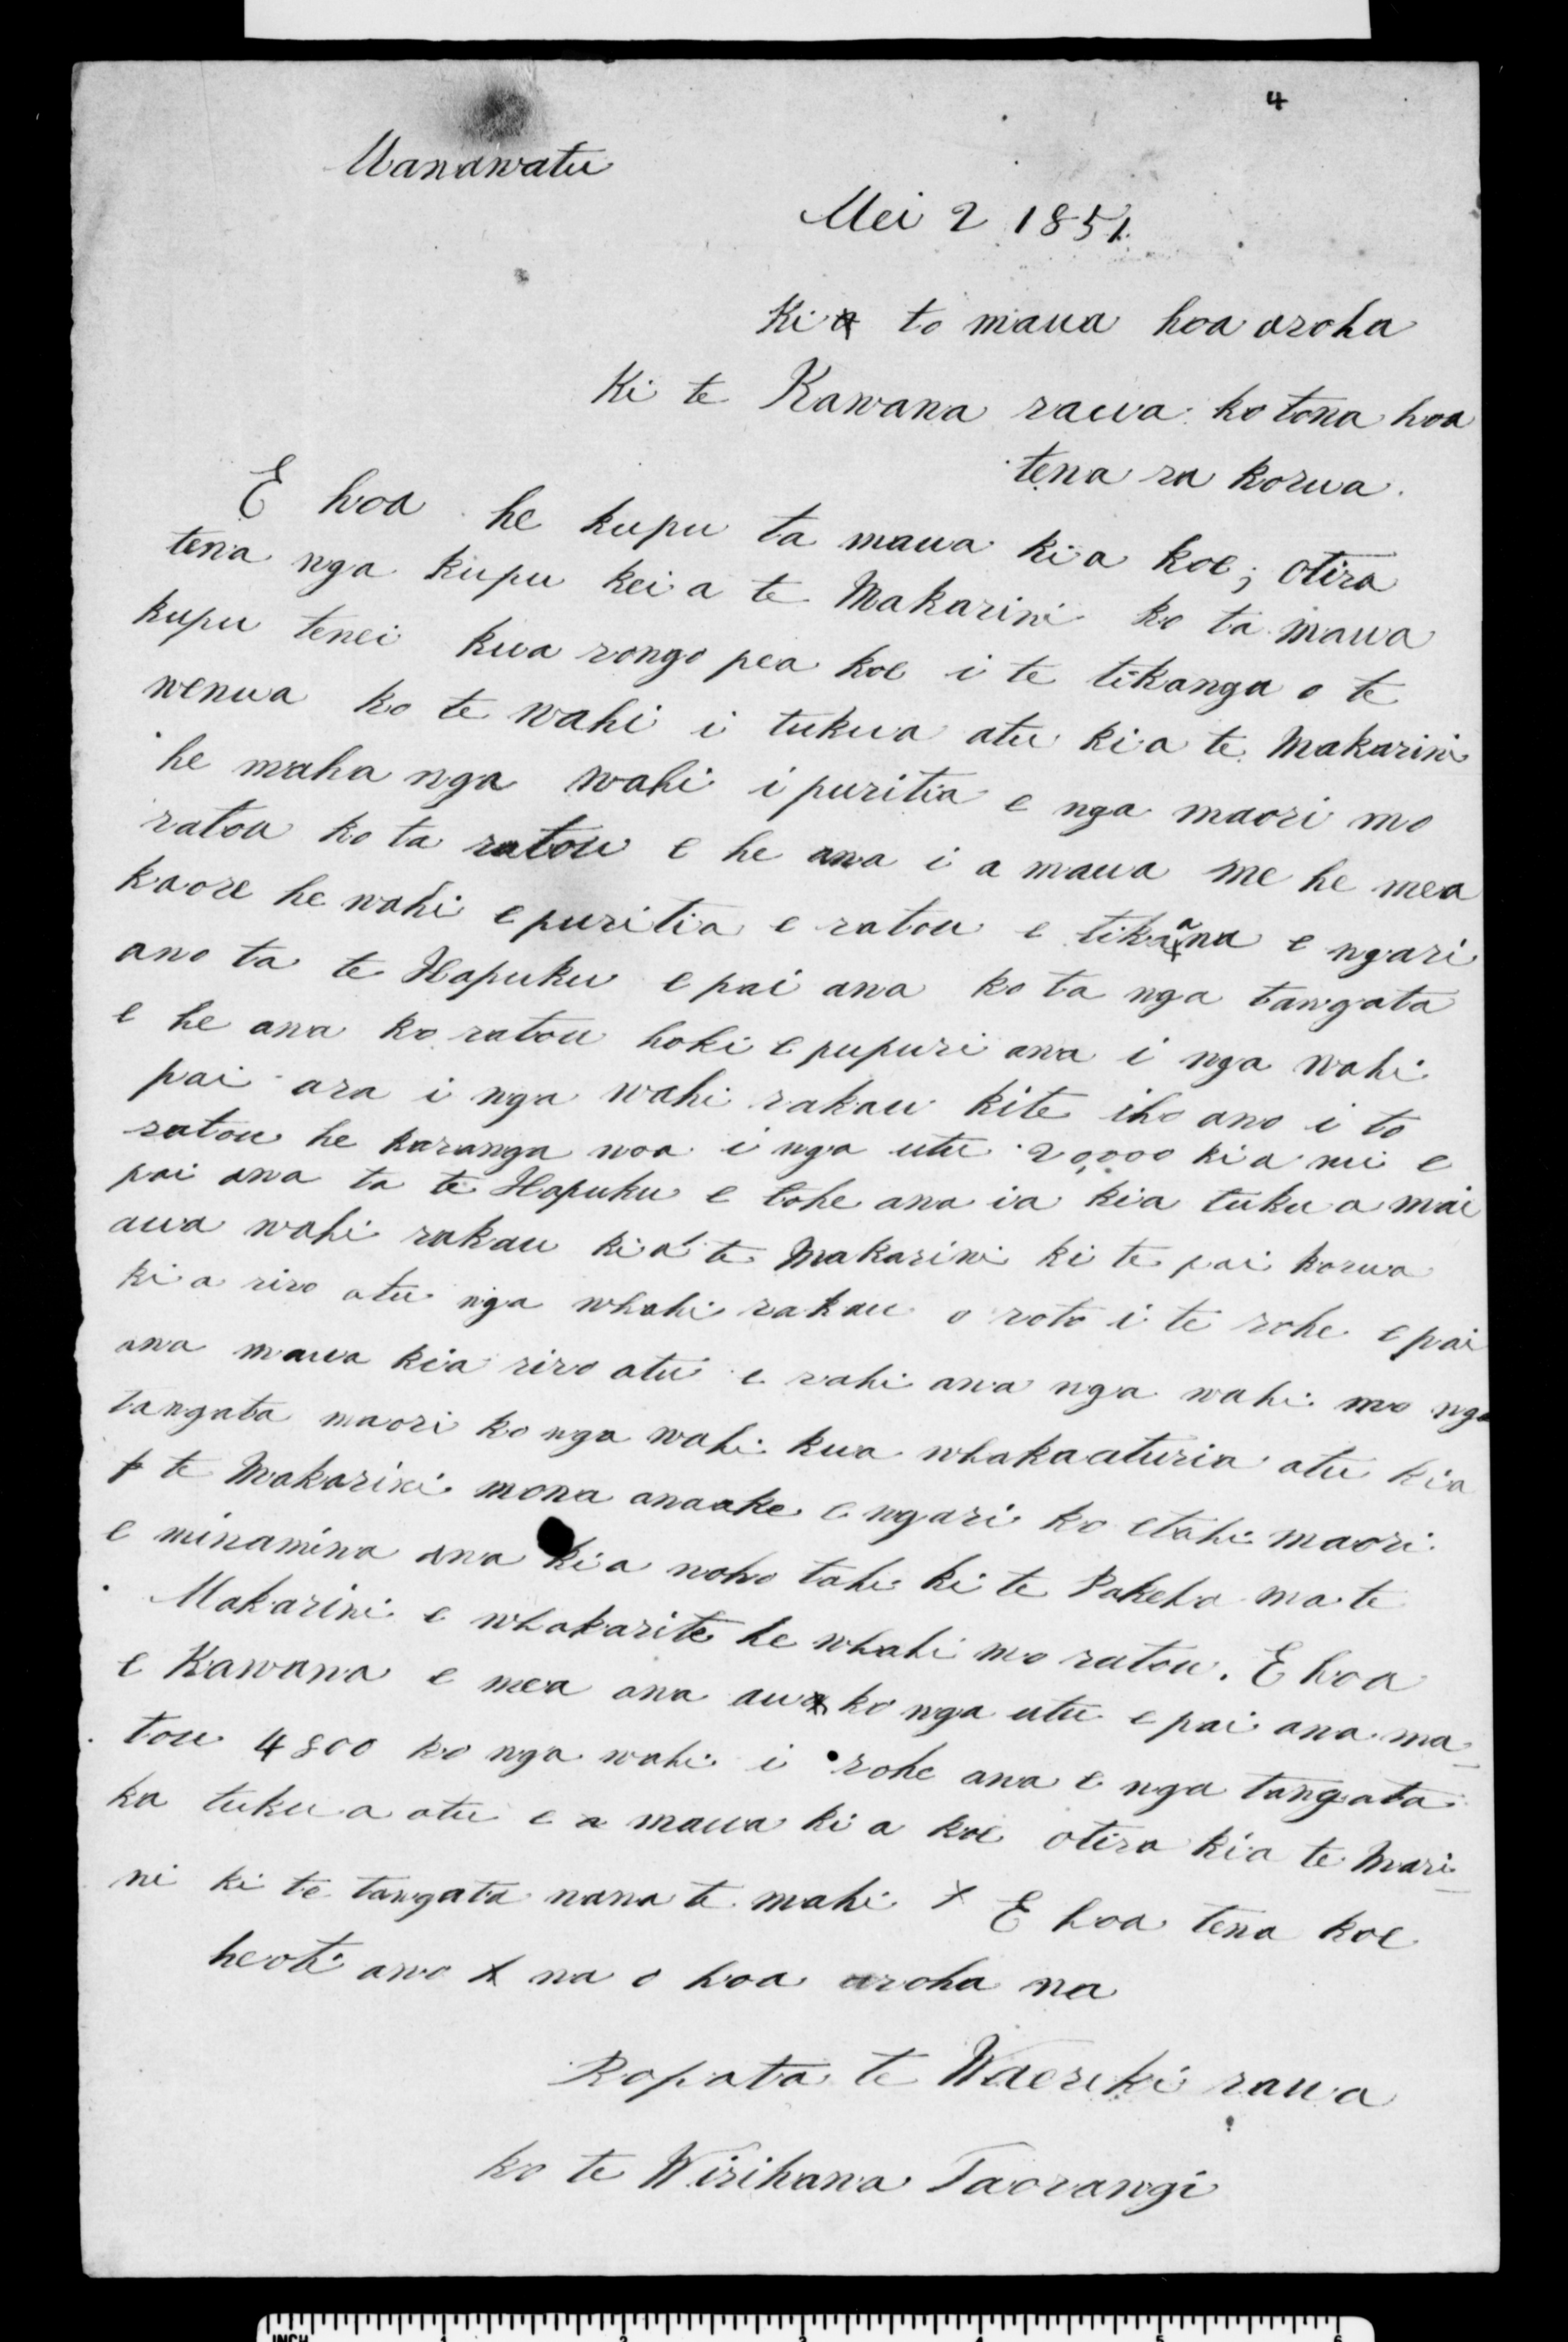 4
Manawatu
Mei 2 1851.
Ki a to maua hoa aroha
Ki te Kawana raua ko tona hoa
tena ra korua.
E hoa he kupu ta maua kia koe; otira
tena nga kupu kei a te Makarini ko ta maua
kupu tenei kua rongo pea koe i te tikanga o te
wenua ko te wahi i tukua atu kia te Makarini
he maha nga wahi i puritia e nga maori mo
ratou ko ta ratou e he ana i a maua me he mea
kaore he wahi e puritia e ratou e tika ana e ngari
ano ta te Hapuku e pai ana ko ta nga tangata
e he ana ko ratou hoki e pupuri ana i nga wahi
pai ara i nga wahi rakau kite iho ano i to
ratou he karanga noa i nga utu 20,000 kia nui e
pai ana ta te Hapuku e tohe ana ia kia tuku a mai
aua wahi rakau kia te Makarini ki te pai korua
ki a riro atu nga whahi rakau o roto i te rohe e pai
ana maua kia riro atu e rahi ana nga wahi mo nga
tangata maori ko nga wahi kua whakaaturia atu kia
te Makarini mona anaake e ngari ko etahi maori
e minamina ana kia noho tahi ki te Pakeha ma te
Makarini e whakarite he whahi mo ratou. E hoa
e Kawana e mea ana au ko nga utu e pai ana ma-
tou 4800 ko nga wahi i rohe ana e nga tangata
ka tuku a atu e a maua ki a koe otira kia te Mari-
ni ki te tangata nana te mahi x E hoa tena koe
heoti ano x na o hoa aroha na
Ropata te Waereki raua
ko te Wirihana Taorangi
INCH 1 2 3 4 5 6